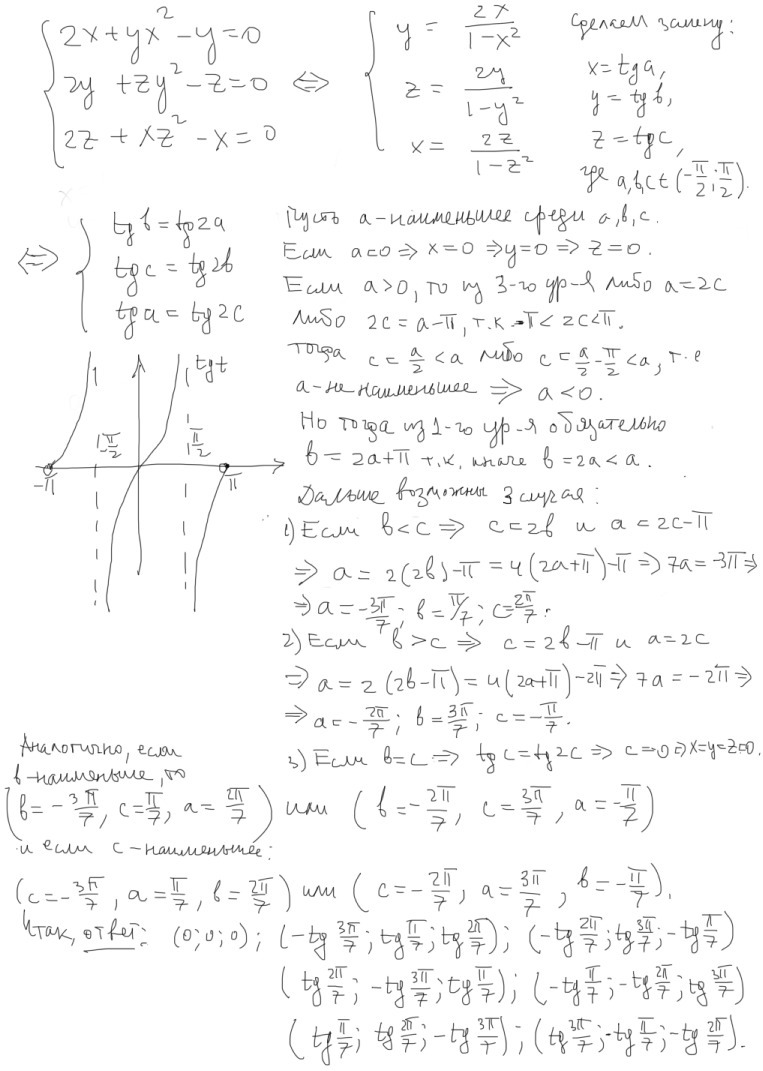 2x+yx²-y=0
2y+zy²-z=0
2z+xz²-x=0
⇔
y = 2x/(1-x²)
z = 2y/(1-y²)
x = 2z/(1-z²)
Сделаем замену:
x=tg a,
y=tg b,
z=tg c,
где a,b,c ∈ (-π/2; π/2).
⇔
tg b = tg 2a
tg c = tg 2b
tg a = tg 2c
Пусть a-наименьшее среди a,b,c.
Если a=0 ⇒ x=0 ⇒ y=0 ⇒ z=0.
Если a>0, то из 3-го ур-я либо a=2c
либо 2c=a-π, т.к. -π<2c<π.
тогда c=a/2<a либо c=a/2-π/2<a, т.е
a-не наименьшее ⇒ a<0.
Но тогда из 1-го ур-я обязательно
b=2a+π т.к. иначе b=2a<a.
Дальше возможны 3 случая:
1) Если b<c ⇒ c=2b и a=2c-π
⇒ a=2(2b)-π=4(2a+π)-π ⇒ 7a=-3π ⇒
⇒ a=-3π/7; b=π/7; c=2π/7.
2) Если b>c ⇒ c=2b-π и a=2c
⇒ a=2(2b-π)=4(2a+π)-2π ⇒ 7a=-2π ⇒
⇒ a=-2π/7; b=3π/7; c=-π/7.
3) Если b=c ⇒ tg c=tg 2c ⇒ c=0 ⇒ x=y=z=0.
tg t
-π
-π/2
π/2
π
Аналогично, если
b-наименьшее, то
(b=-3π/7, c=π/7, a=2π/7) или (b=-2π/7, c=3π/7, a=-π/7)
и если c-наименьшее:
(c=-3π/7, a=π/7, b=2π/7) или (c=-2π/7, a=3π/7, b=-π/7).
Итак, ответ: (0;0;0); (-tg 3π/7; tg π/7; tg 2π/7); (-tg 2π/7; tg 3π/7; -tg π/7)
(tg 2π/7; -tg 3π/7; tg π/7); (-tg π/7; -tg 2π/7; tg 3π/7)
(tg π/7; tg 2π/7; -tg 3π/7); (tg 3π/7; -tg π/7; -tg 2π/7).